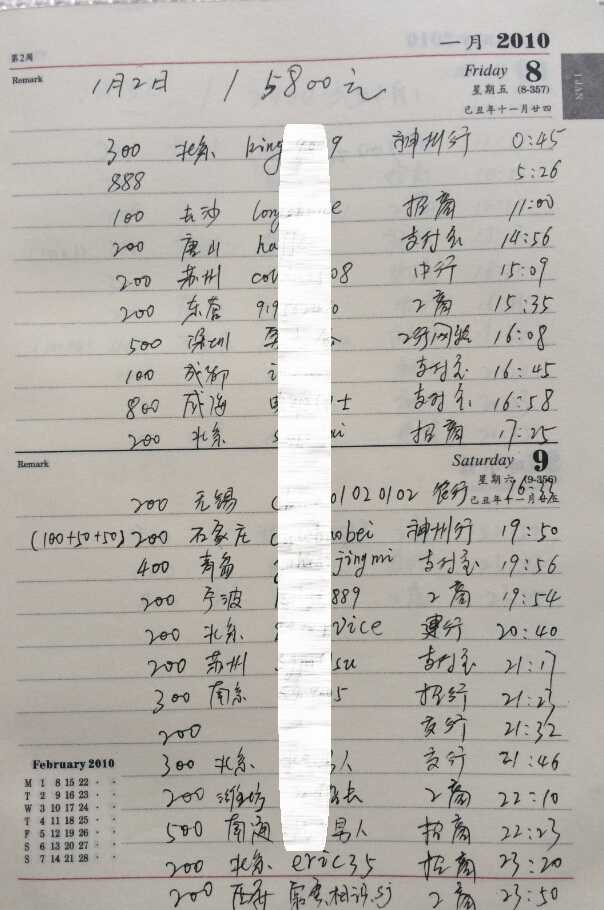 一月 2010
第2周
Friday 8
Remark
星期五 (8-357)
己丑年十一月廿四
1 JAN
1月2日 15800元
300 北京 king 9 神州行 0:45
888 5:26
100 长沙 long e 招商 11:00
200 唐山 ha 支付宝 14:56
200 苏州 co 08 中行 15:09
200 东营 919 0 工商 15:35
500 深圳 工行网转 16:08
100 成都 支付宝 16:45
800 威海 士 支付宝 16:58
200 北京 s ni 招商 17:25
Remark
Saturday 9
星期六 (9-356)
己丑年十一月廿五
200 无锡 01020102 农行
(100+50+50) 200 石家庄 bei 神州行 19:50
400 青岛 jingmi 支付宝 19:56
200 宁波 889 工商 19:54
200 北京 vice 建行 20:40
200 苏州 su 支付宝 21:17
300 南京 5 招行 21:23
200 交行 21:32
300 北京 人 交行 21:46
200 潍坊 长 工商 22:10
500 南通 男人 招商 22:23
200 北京 eric35 招商 23:20
200 相识 sj 工商 23:50
February 2010
M 1 8 15 22
T 2 9 16 23
W 3 10 17 24
T 4 11 18 25
F 5 12 19 26
S 6 13 20 27
S 7 14 21 28